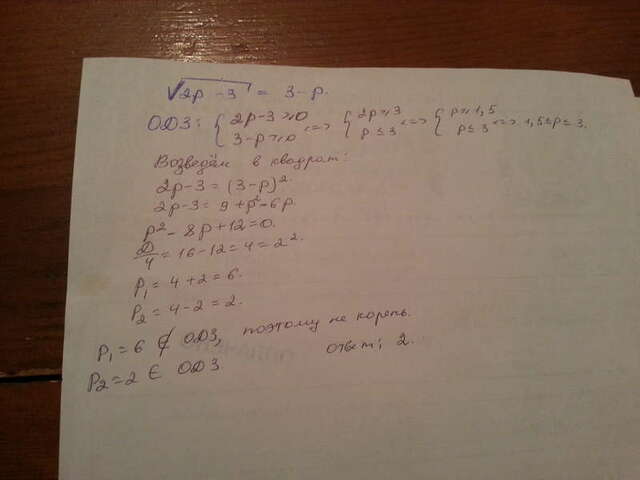 √2p-3 = 3-p.
ОДЗ: { 2p-3≥0 3-p≥0 <=> { 2p≥3 p≤3 <=> { p≥1,5 p≤3 <=> 1,5≤p≤3.
Возведём в квадрат:
2p-3=(3-p)².
2p-3=9+p²-6p.
p²-8p+12=0.
D/4=16-12=4=2².
P₁=4+2=6.
P₂=4-2=2.
P₁=6 ∉ ОДЗ, поэтому не корень.
P₂=2 ∈ ОДЗ
ответ: 2.